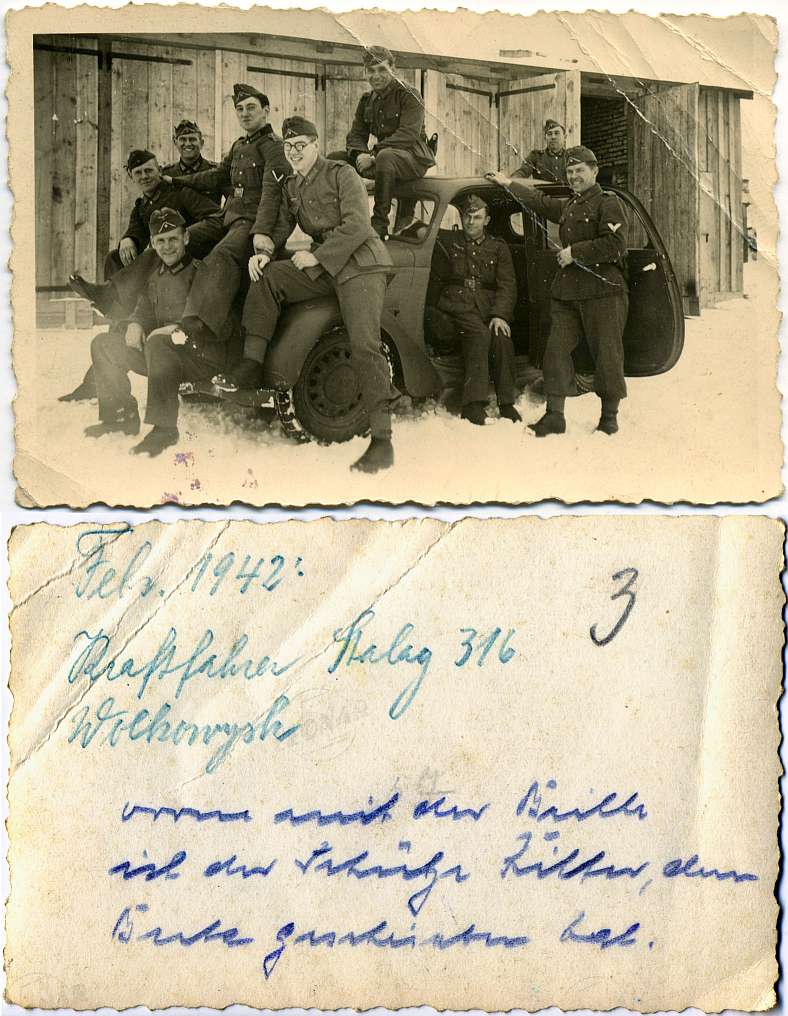 Febr. 1942:
3
Kraftfahrer Stalag 316
Wolkowysk
vorne mit der Brille
ist der Schütze Zilker, dem
geschrieben hat.